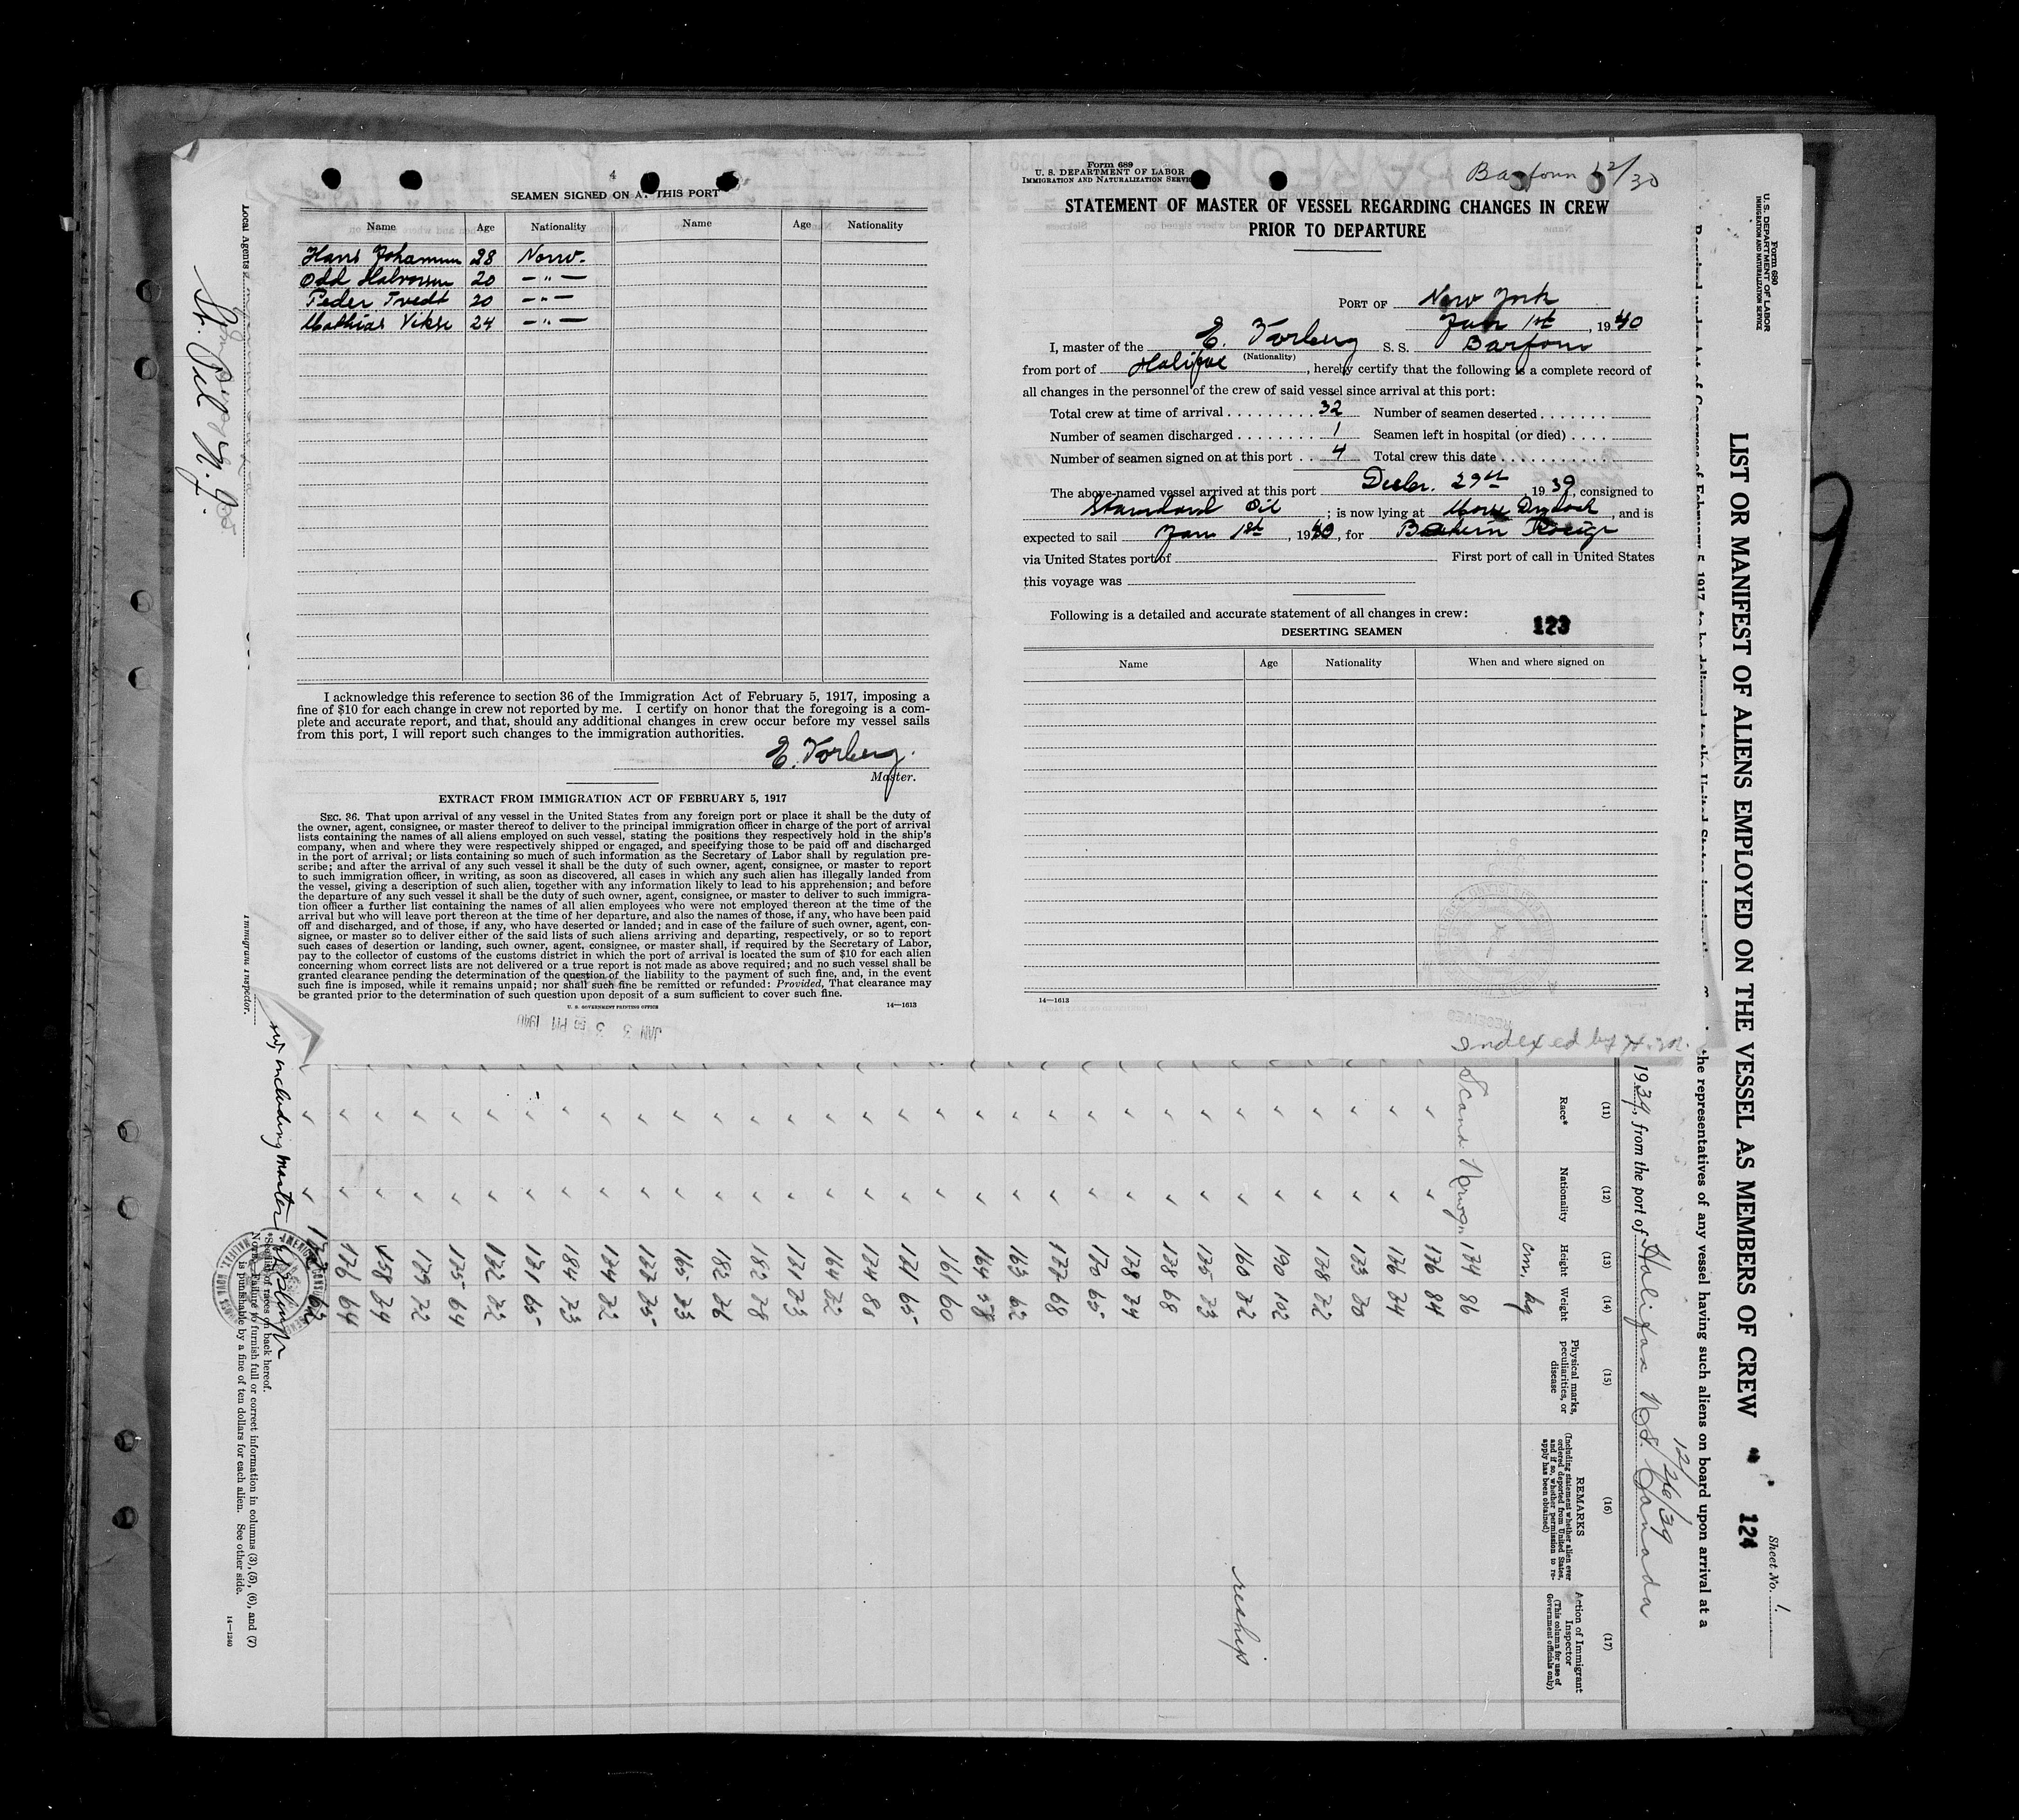 4
SEAMEN SIGNED ON AT THIS PORT
Name Age Nationality Name Age Nationality
Hans 28 Norw.
Odd Halvorsen 20 — " —
Peder Tvedt 20 — " —
Mathias Vikse 24 — " —
I acknowledge this reference to section 36 of the Immigration Act of February 5, 1917, imposing a
fine of $10 for each change in crew not reported by me. I certify on honor that the foregoing is a com-
plete and accurate report, and that, should any additional changes in crew occur before my vessel sails
from this port, I will report such changes to the immigration authorities.
E. Torberg.
Master.
EXTRACT FROM IMMIGRATION ACT OF FEBRUARY 5, 1917
SEC. 36. That upon arrival of any vessel in the United States from any foreign port or place it shall be the duty of
the owner, agent, consignee, or master thereof to deliver to the principal immigration officer in charge of the port of arrival
lists containing the names of all aliens employed on such vessel, stating the positions they respectively hold in the ship's
company, when and where they were respectively shipped or engaged, and specifying those to be paid off and discharged
in the port of arrival; or lists containing so much of such information as the Secretary of Labor shall by regulation pre-
scribe; and after the arrival of any such vessel it shall be the duty of such owner, agent, consignee, or master to report
to such immigration officer, in writing, as soon as discovered, all cases in which any such alien has illegally landed from
the vessel, giving a description of such alien, together with any information likely to lead to his apprehension; and before
the departure of any such vessel it shall be the duty of such owner, agent, consignee, or master to deliver to such immigra-
tion officer a further list containing the names of all alien employees who were not employed thereon at the time of the
arrival but who will leave port thereon at the time of her departure, and also the names of those, if any, who have been paid
off and discharged, and of those, if any, who have deserted or landed; and in case of the failure of such owner, agent, con-
signee, or master so to deliver either of the said lists of such aliens arriving and departing, respectively, or so to report
such cases of desertion or landing, such owner, agent, consignee, or master shall, if required by the Secretary of Labor,
pay to the collector of customs of the customs district in which the port of arrival is located the sum of $10 for each alien
concerning whom correct lists are not delivered or a true report is not made as above required; and no such vessel shall be
granted clearance pending the determination of the question of the liability to the payment of such fine, and, in the event
such fine is imposed, while it remains unpaid; nor shall such fine be remitted or refunded: Provided, That clearance may
be granted prior to the determination of such question upon deposit of a sum sufficient to cover such fine.
U. S. GOVERNMENT PRINTING OFFICE 14—1613
JAN 3 3 56 PM 1940
Form 689
U. S. DEPARTMENT OF LABOR
IMMIGRATION AND NATURALIZATION SERVICE
12/30
STATEMENT OF MASTER OF VESSEL REGARDING CHANGES IN CREW
PRIOR TO DEPARTURE
PORT OF New York
Jan 1st, 1940
I, master of the E. Torberg S. S. Barfonn
(Nationality)
from port of Halifax, hereby certify that the following is a complete record of
all changes in the personnel of the crew of said vessel since arrival at this port:
Total crew at time of arrival . . . . . . . . . 32 Number of seamen deserted . . . . . . .
Number of seamen discharged . . . . . . . . 1 Seamen left in hospital (or died) . . . .
Number of seamen signed on at this port . . 4 Total crew this date . . . . . . . . . . .
The above-named vessel arrived at this port Decbr. 29th 1939, consigned to
Standard Oil; is now lying at Morse Drydock, and is
expected to sail Jan 1st, 1940, for
via United States port of First port of call in United States
this voyage was
Following is a detailed and accurate statement of all changes in crew:
DESERTING SEAMEN 123
Name Age Nationality When and where signed on
14—1613
RECEIVED
Indexed by H.M.
Form 680
U. S. DEPARTMENT OF LABOR
IMMIGRATION AND NATURALIZATION SERVICE
Sheet No. 1
LIST OR MANIFEST OF ALIENS EMPLOYED ON THE VESSEL AS MEMBERS OF CREW 124
the representatives of any vessel having such aliens on board upon arrival at a
12/26/39
1939, from the port of Halifax N.S. Canada
(11) (12) (13) (14) (15) (16) (17)
Race* Nationality Height Weight Physical marks, peculiarities, or disease REMARKS Action of Immigrant Inspector
(Including statement whether alien ever ordered deported from United States, and if so, whether permission to re-apply has been obtained)
(This column for use of Government officials only)
cm. kg
Scand Norwgn 174 86
" " 176 84
" " 176 74
" " 173 70
" " 178 72
" " 190 102
" " 160 72
reship
" " 175 73
" " 178 68
" " 178 74
" " 170 65
" " 177 68
" " 163 62
" " 164 58
" " 161 60
" " 171 65
" " 174 80
" " 164 62
" " 171 73
" " 182 78
" " 182 76
" " 165 73
" " 177 75
" " 174 72
" " 184 73
" " 171 65
" " 172 72
" " 175 64
" " 179 72
" " 158 74
" " 176 64
" " 172 63
including master
*See list of races on back hereof.
NOTE.—Failure to furnish full or correct information in columns (3), (5), (6), and (7)
is punishable by a fine of ten dollars for each alien. See other side.
14—1240
Local Agents
Immigrant Inspector.
St. Oil N. J.